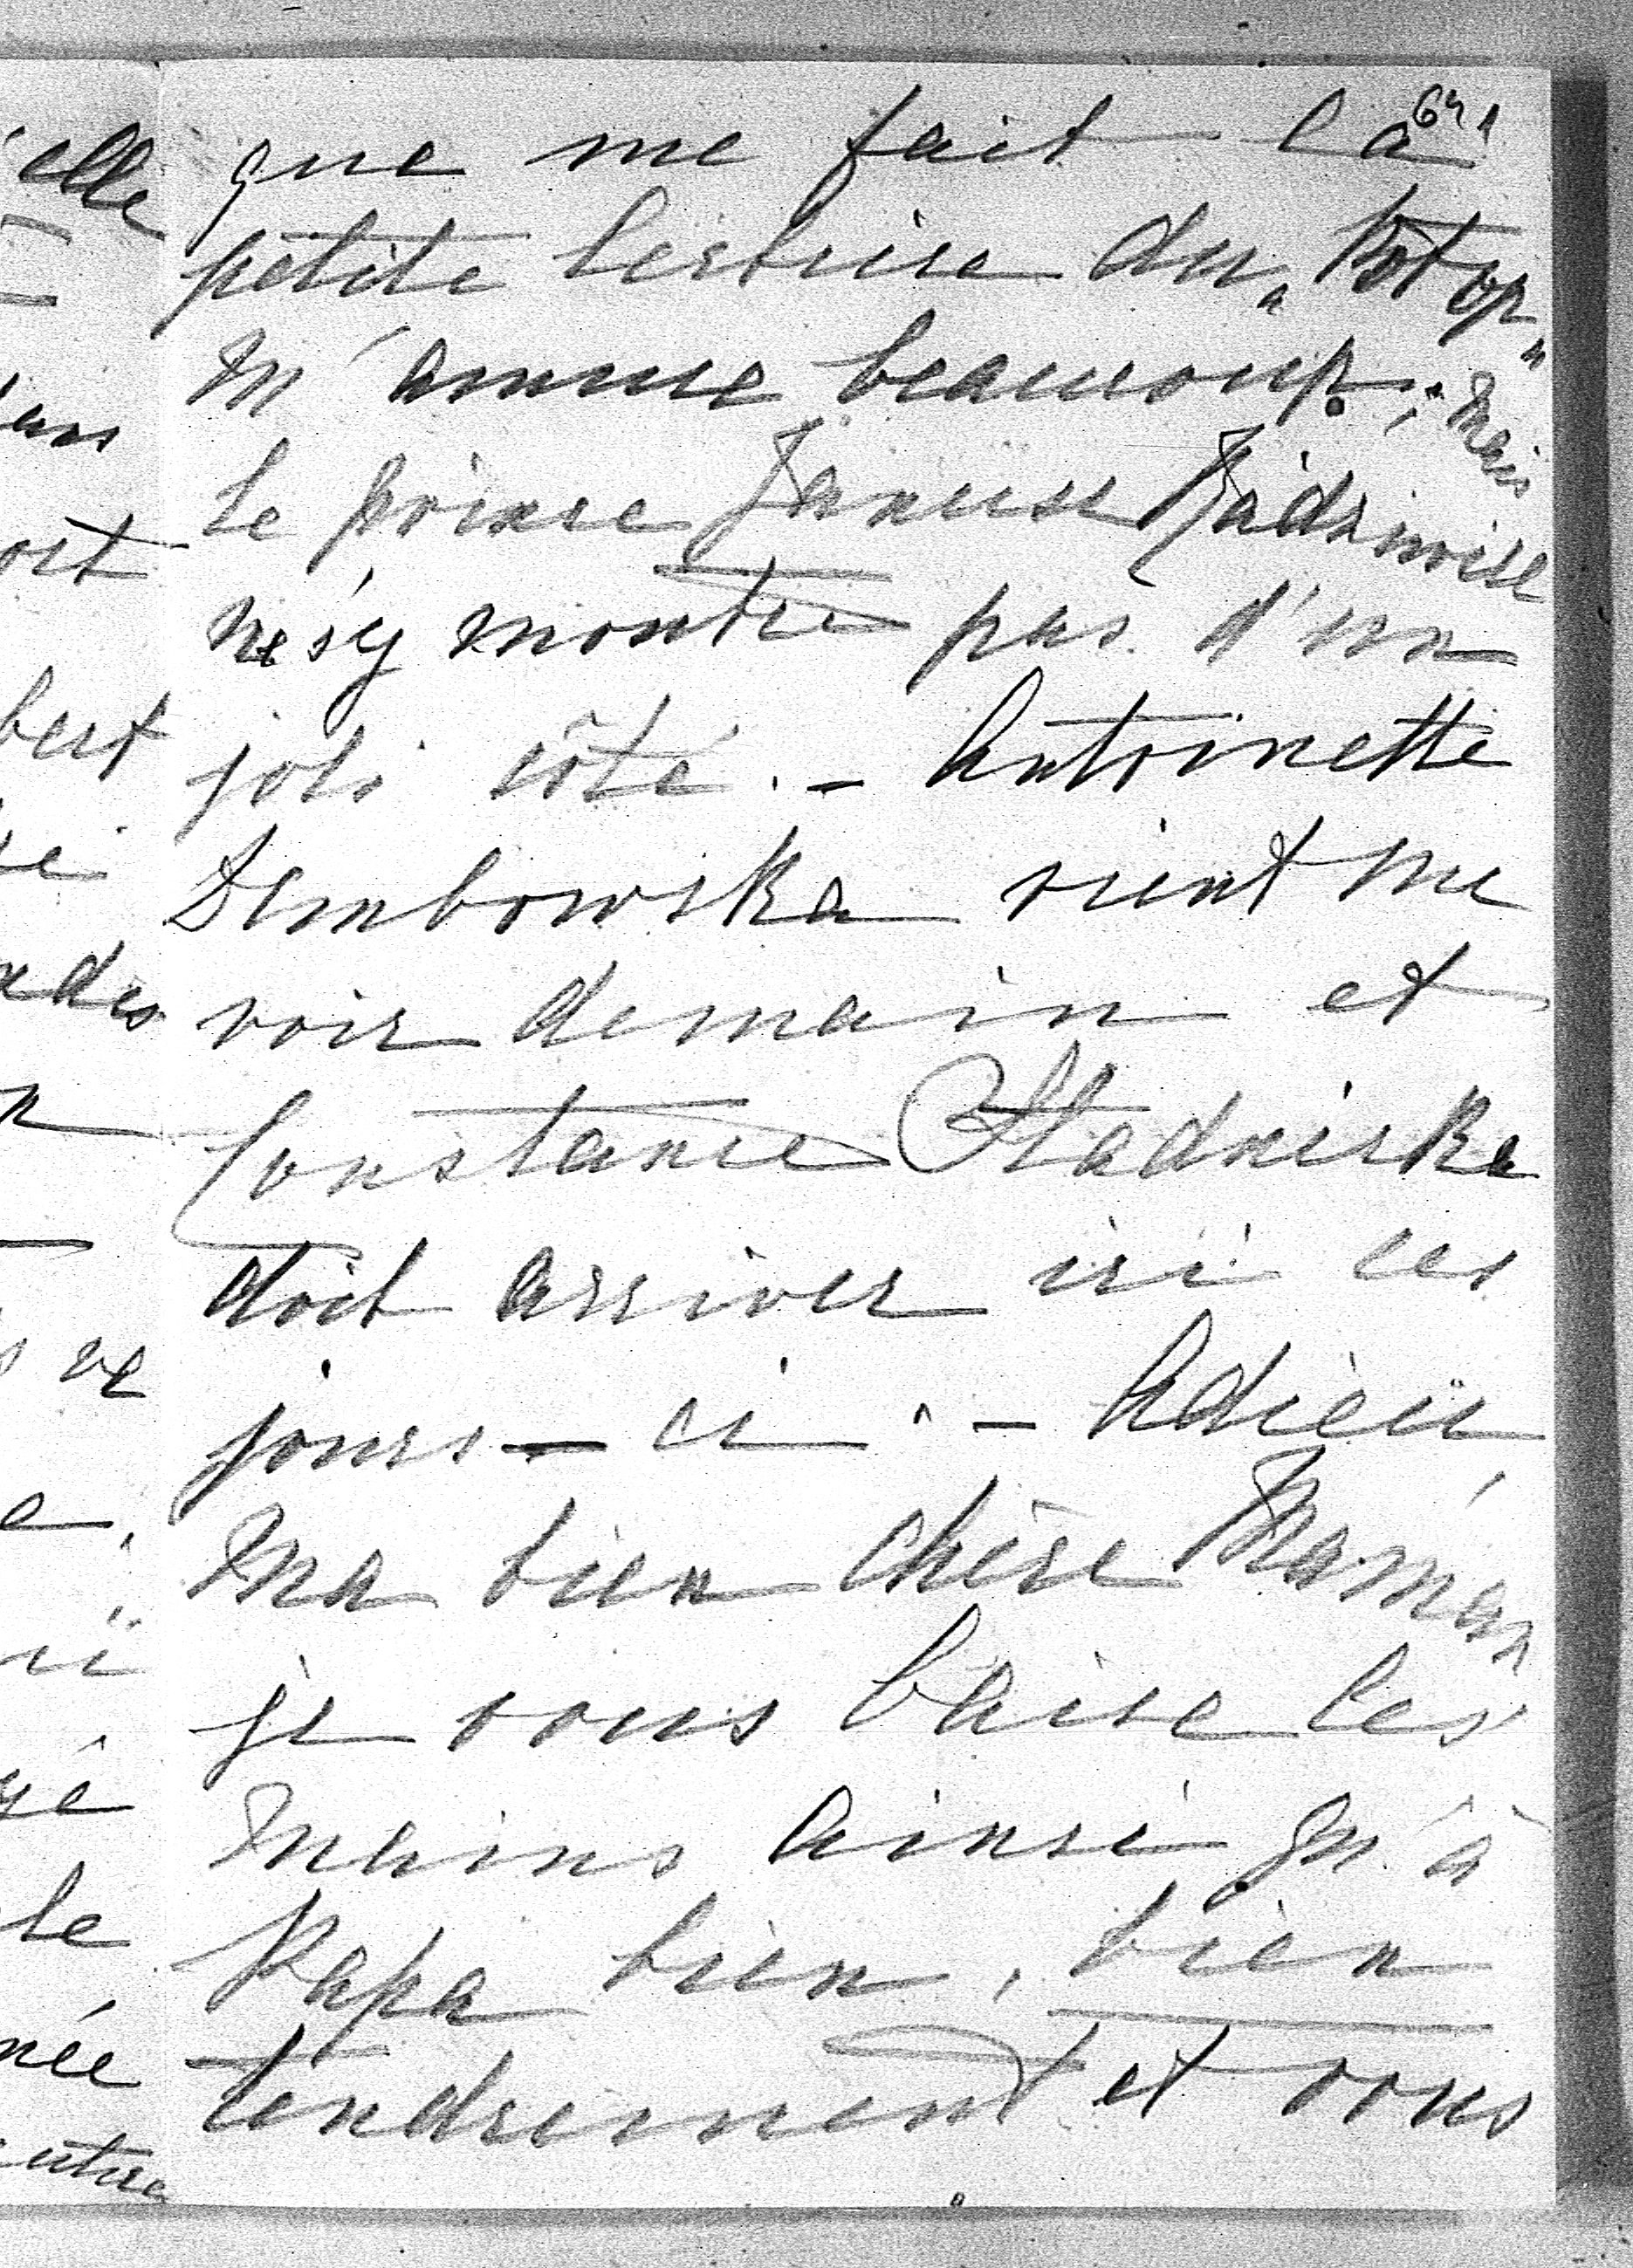 641
que me fait la
petite lectrice du „Potop"
m'amuse beaucoup; mais
le prince Janusz Radziwill
ne s'y montre pas d'un
joli côté. – Antoinette
Dembowska vient me
voir demain et
Constance Stadnicka
doit arriver ici ces
jours-ci. – Adieu,
ma bien chère Maman
je vous baise les
mains ainsi qu'à
Papa bien, bien
tendrement et vous